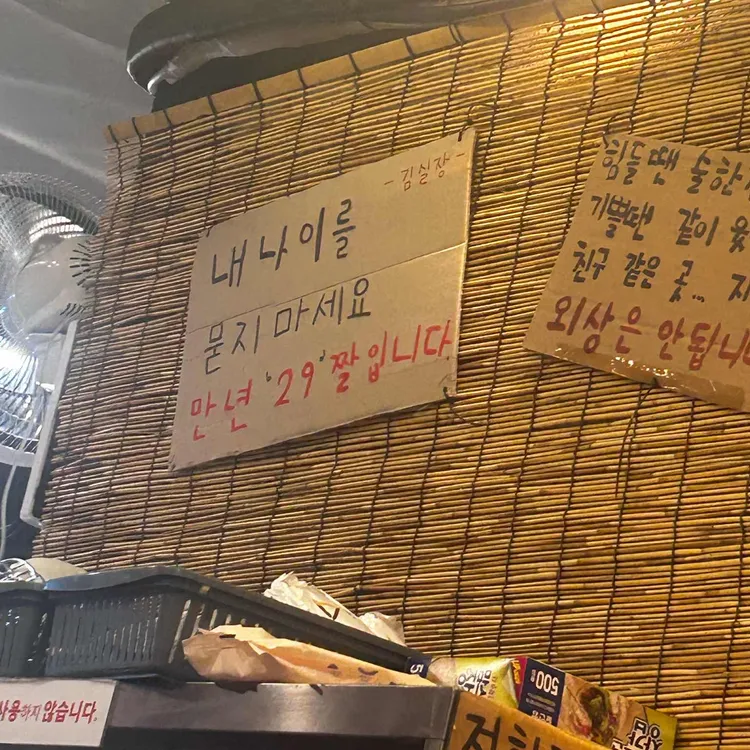 - 김실장 -
내 나이를
묻지 마세요
만년 '29'짤입니다
힘들땐 술한
기쁠땐 같이
친구 같은 곳...
외상은 안됩니
사용하지 않습니다.
500
5